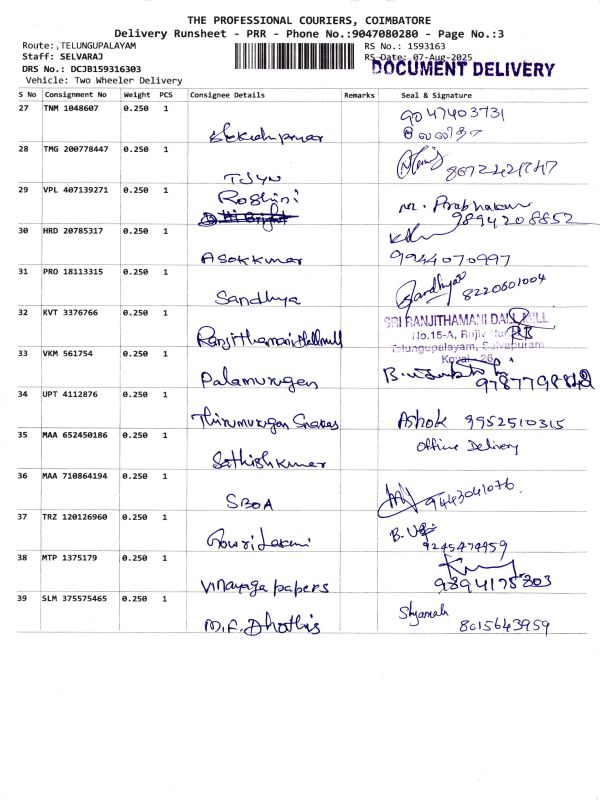 THE PROFESSIONAL COURIERS, COIMBATORE
Delivery Runsheet - PRR - Phone No.:9047080280 - Page No.:3
Route:,TELUNGUPALAYAM
RS No.: 1593163
Staff: SELVARAJ
RS Date: 07-Aug-2025
DOCUMENT DELIVERY
DRS No.: DCJB159316303
Vehicle: Two Wheeler Delivery
S No Consignment No Weight PCS Consignee Details Remarks Seal & Signature
27 TNM 1048607 0.250 1
9047403731
28 TMG 200778447 0.250 1
TJYN
29 VPL 407139271 0.250 1 Roshini
M. Prabhakar
9894208852
30 HRD 20785317 0.250 1
Asokkumar 9944070997
31 PRO 18113315 0.250 1
Sandhya Sandhya 8220601004
32 KVT 3376766 0.250 1 SRI RANJITHAMANI DALL MILL
No.15-A, Rajiv
Ranjithamani Dallmill Telungupalayam, Selvapuram
33 VKM 561754 0.250 1 Kovai - 26
Palamurugan
34 UPT 4112876 0.250 1
Thirumurugan Snakes Ashok 9952510315
35 MAA 652450186 0.250 1 Office Delivery
Sathishkumar
36 MAA 710864194 0.250 1
SBOA 9443041076
37 TRZ 120126960 0.250 1
Gowri Laxmi 9245474959
38 MTP 1375179 0.250 1
Vinayaga papers 9894175803
39 SLM 375575465 0.250 1 Shyamala
M.F. Dhothis 8015643959